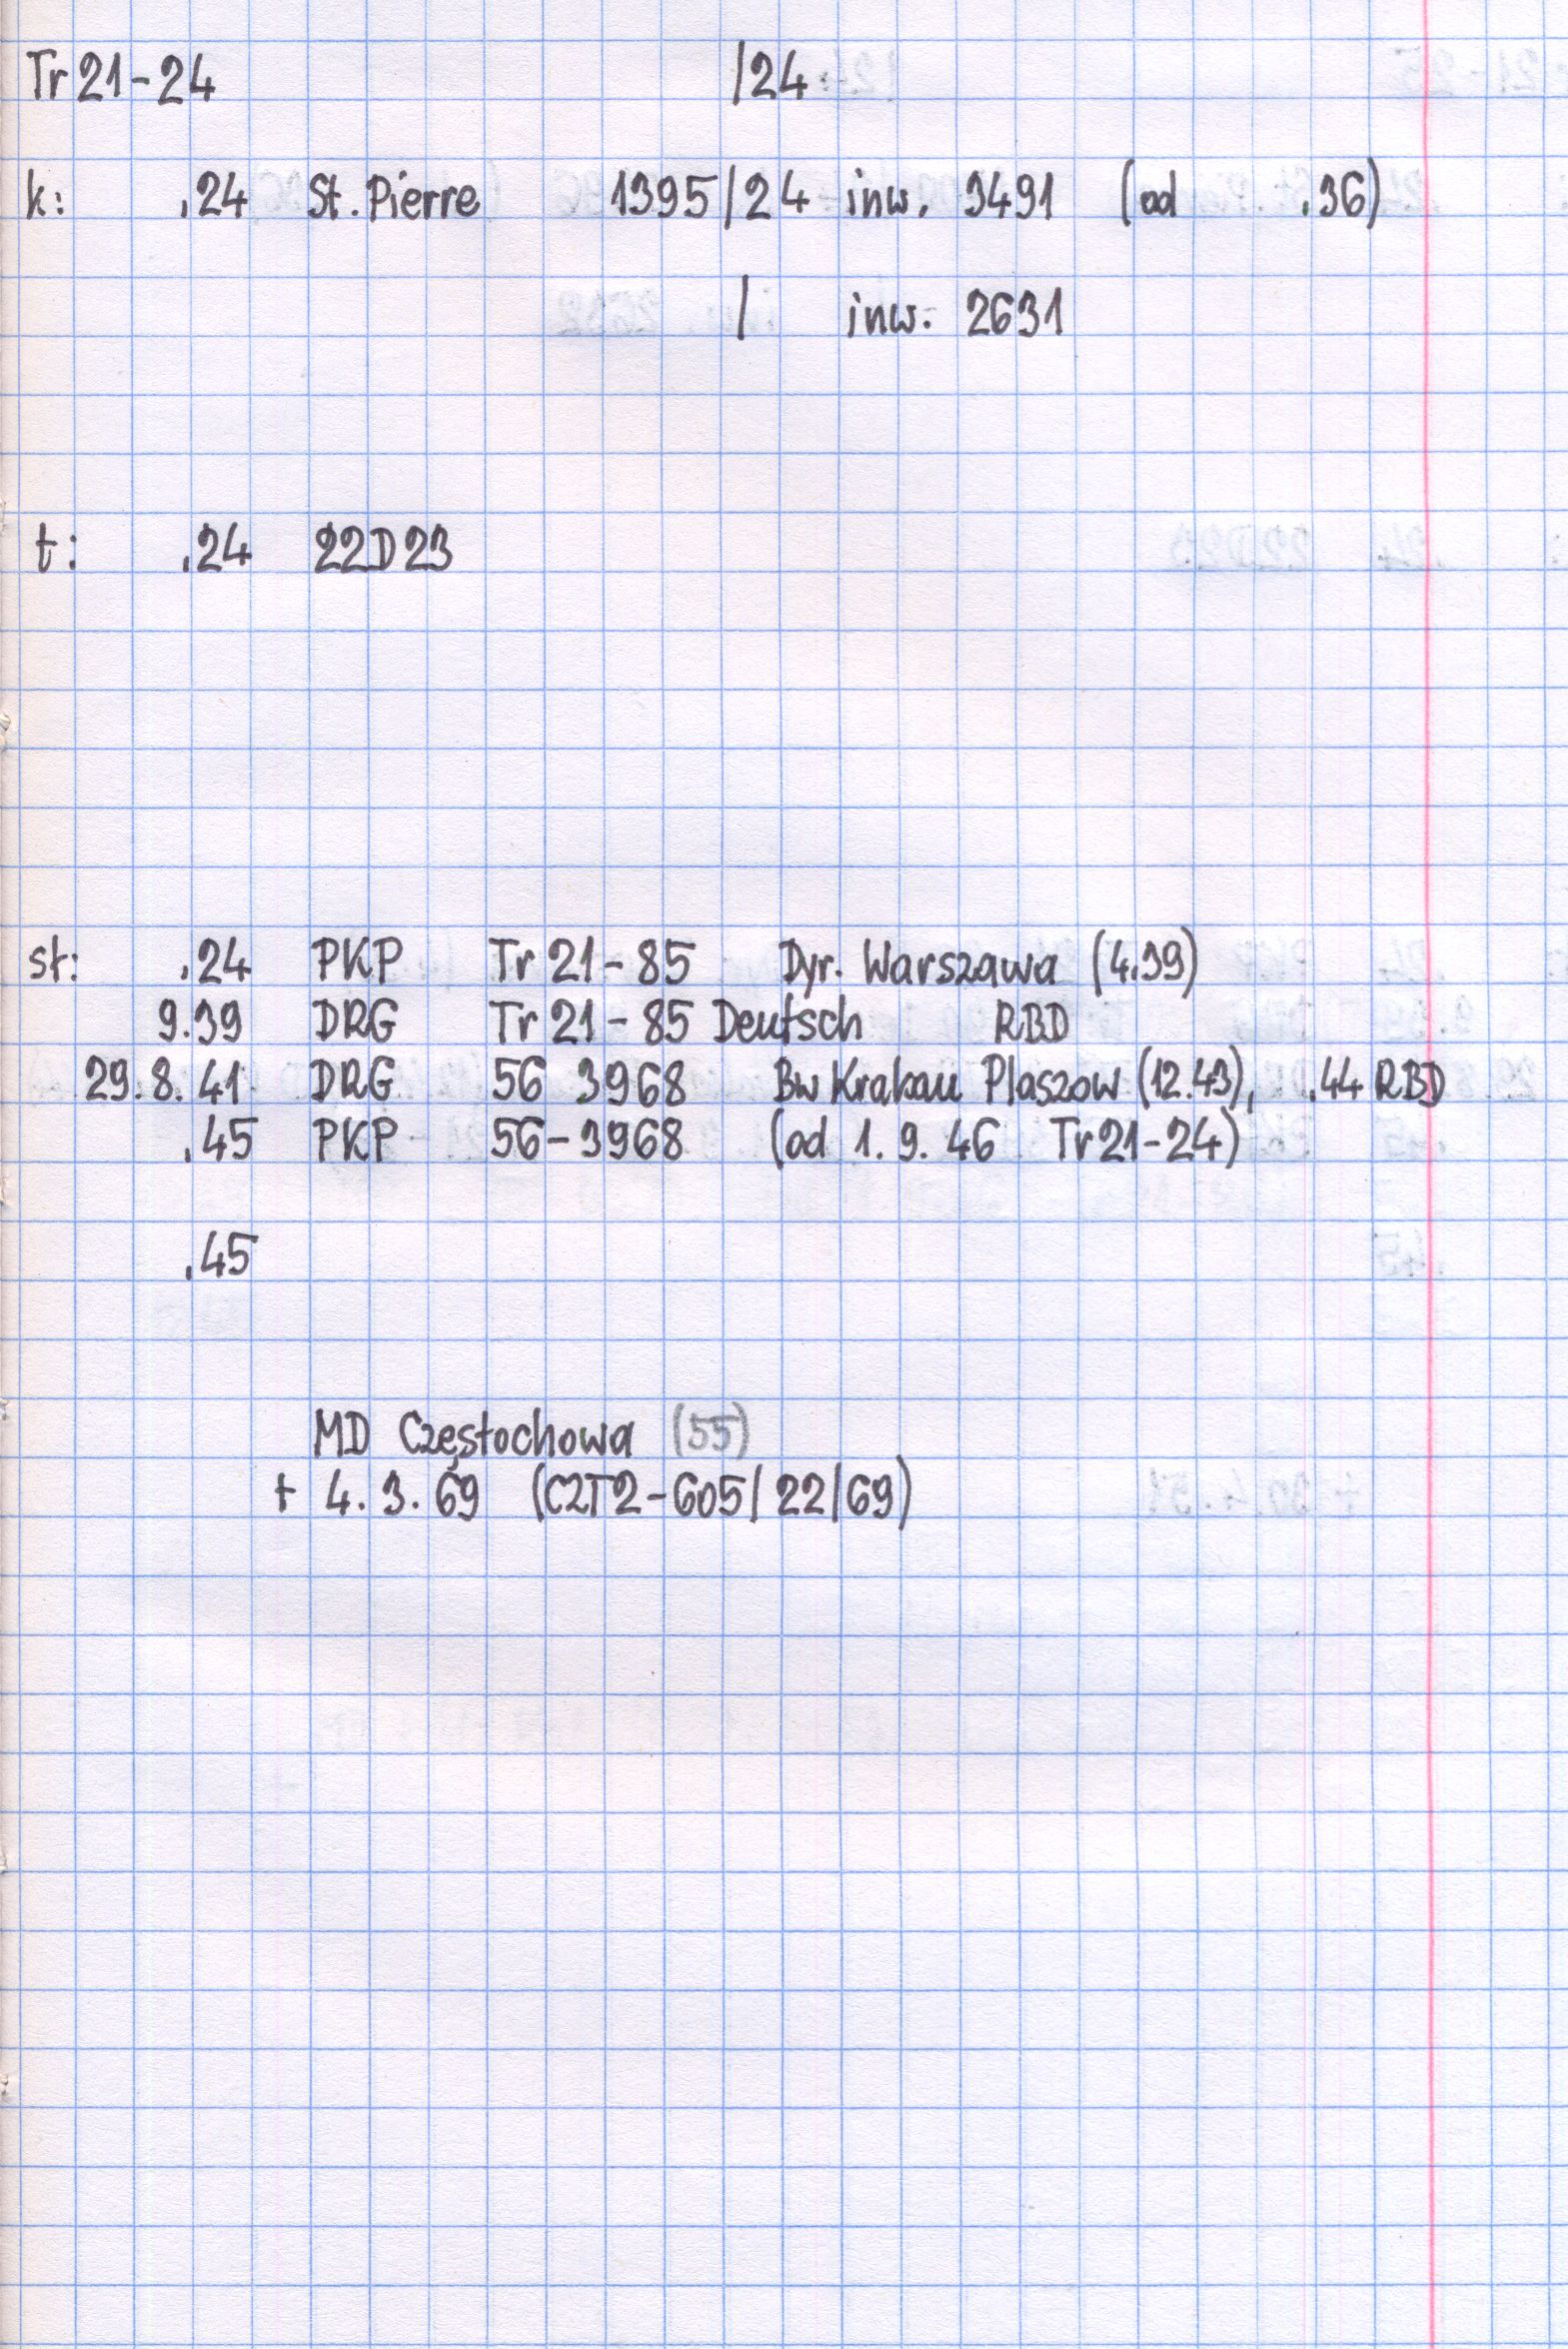 Tr21-24 /24
k: .24 St. Pierre 1395/24 inw. 3491 (od .36)
/ inw. 2631
t: .24 22D23
st: .24 PKP Tr21-85 Dyr. Warszawa (4.39)
9.39 DRG Tr21-85 Deutsch RBD
29.8.41 DRG 56 3968 Bw Krakau Plaszow (12.43), .44 RBD
.45 PKP 56-3968 (od 1.9.46 Tr21-24)
.45
MD Częstochowa (55)
+ 4.3.69 (CZT2-605/22/69)